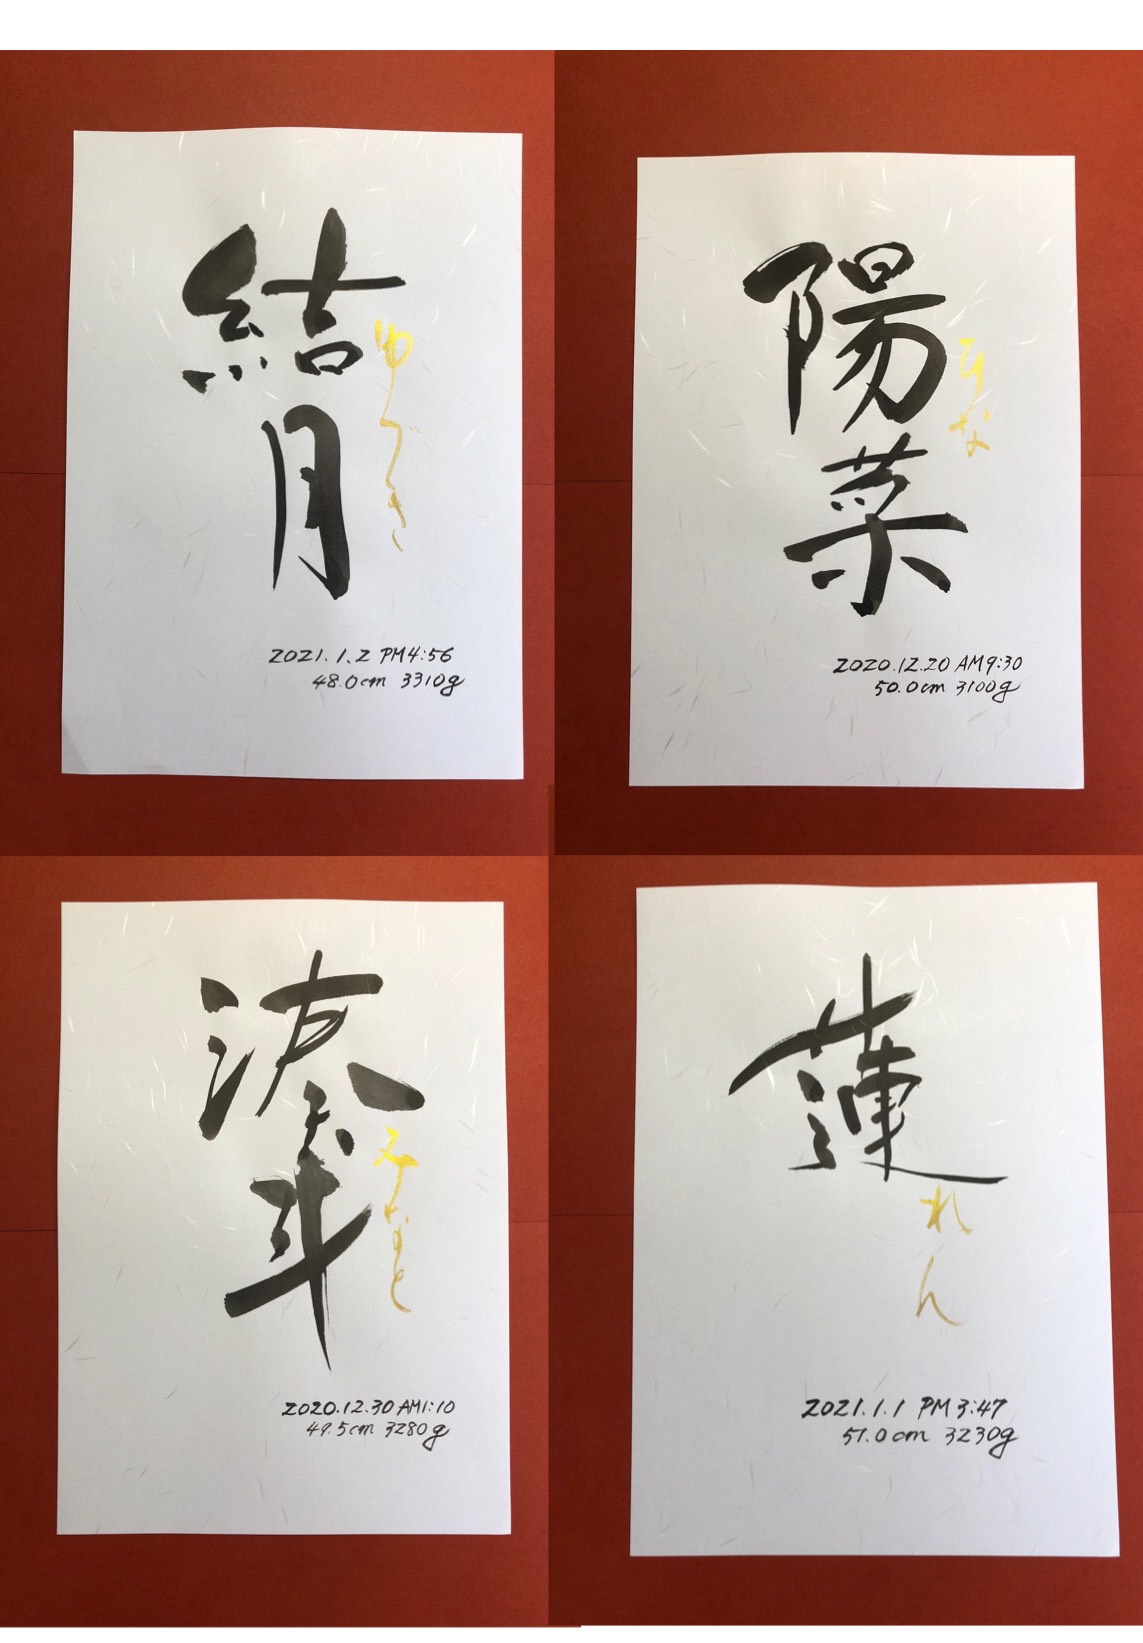 結月
ゆづき
2021.1.2 PM4:56
48.0cm 3310g
陽菜
ひな
2020.12.20 AM9:30
50.0cm 3100g
湊斗
みなと
2020.12.30 AM1:10
49.5cm 3280g
蓮
れん
2021.1.1 PM3:47
51.0cm 3230g